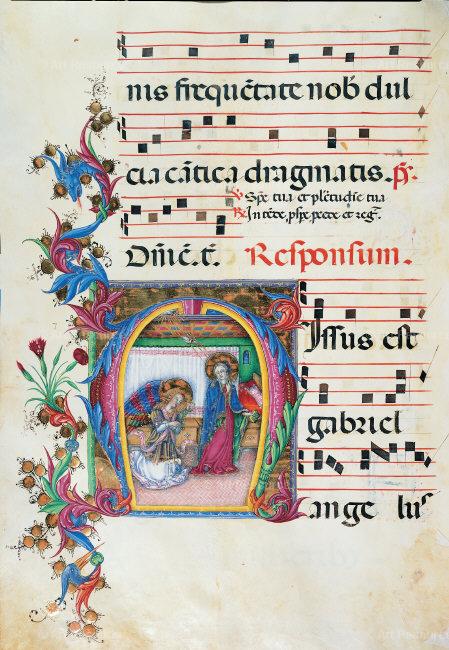 nis frequētate nob̄ dul
cia cātica dragmatis. p̄s.
℣ Spē tua et plētudīe tua
℟ Intēde, pspe pcede et reg̅.
Diuīe. t̄. Responsum.
Issus est
gabriel
ange lus